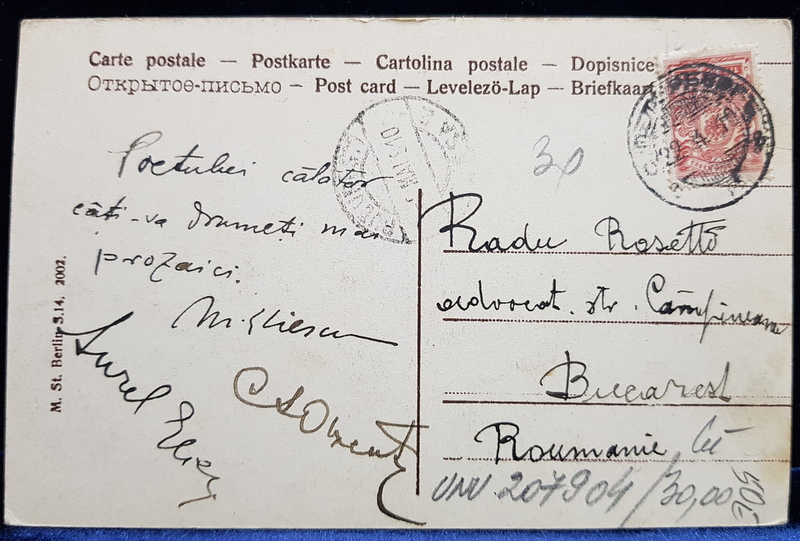 Carte postale — Postkarte — Cartolina postale — Dopisnice
Открытое-письмо — Post card — Levelező-Lap — Briefkaart
30
Poetului călător
câți-va drumeți mai
prozaici.
M. Iliescu
Aurel
M. St. Berlin S.14. 2002.
Radu Rosetti
advocat. str. Câmpineanu
Bucarest
Roumanie
207904/30,00